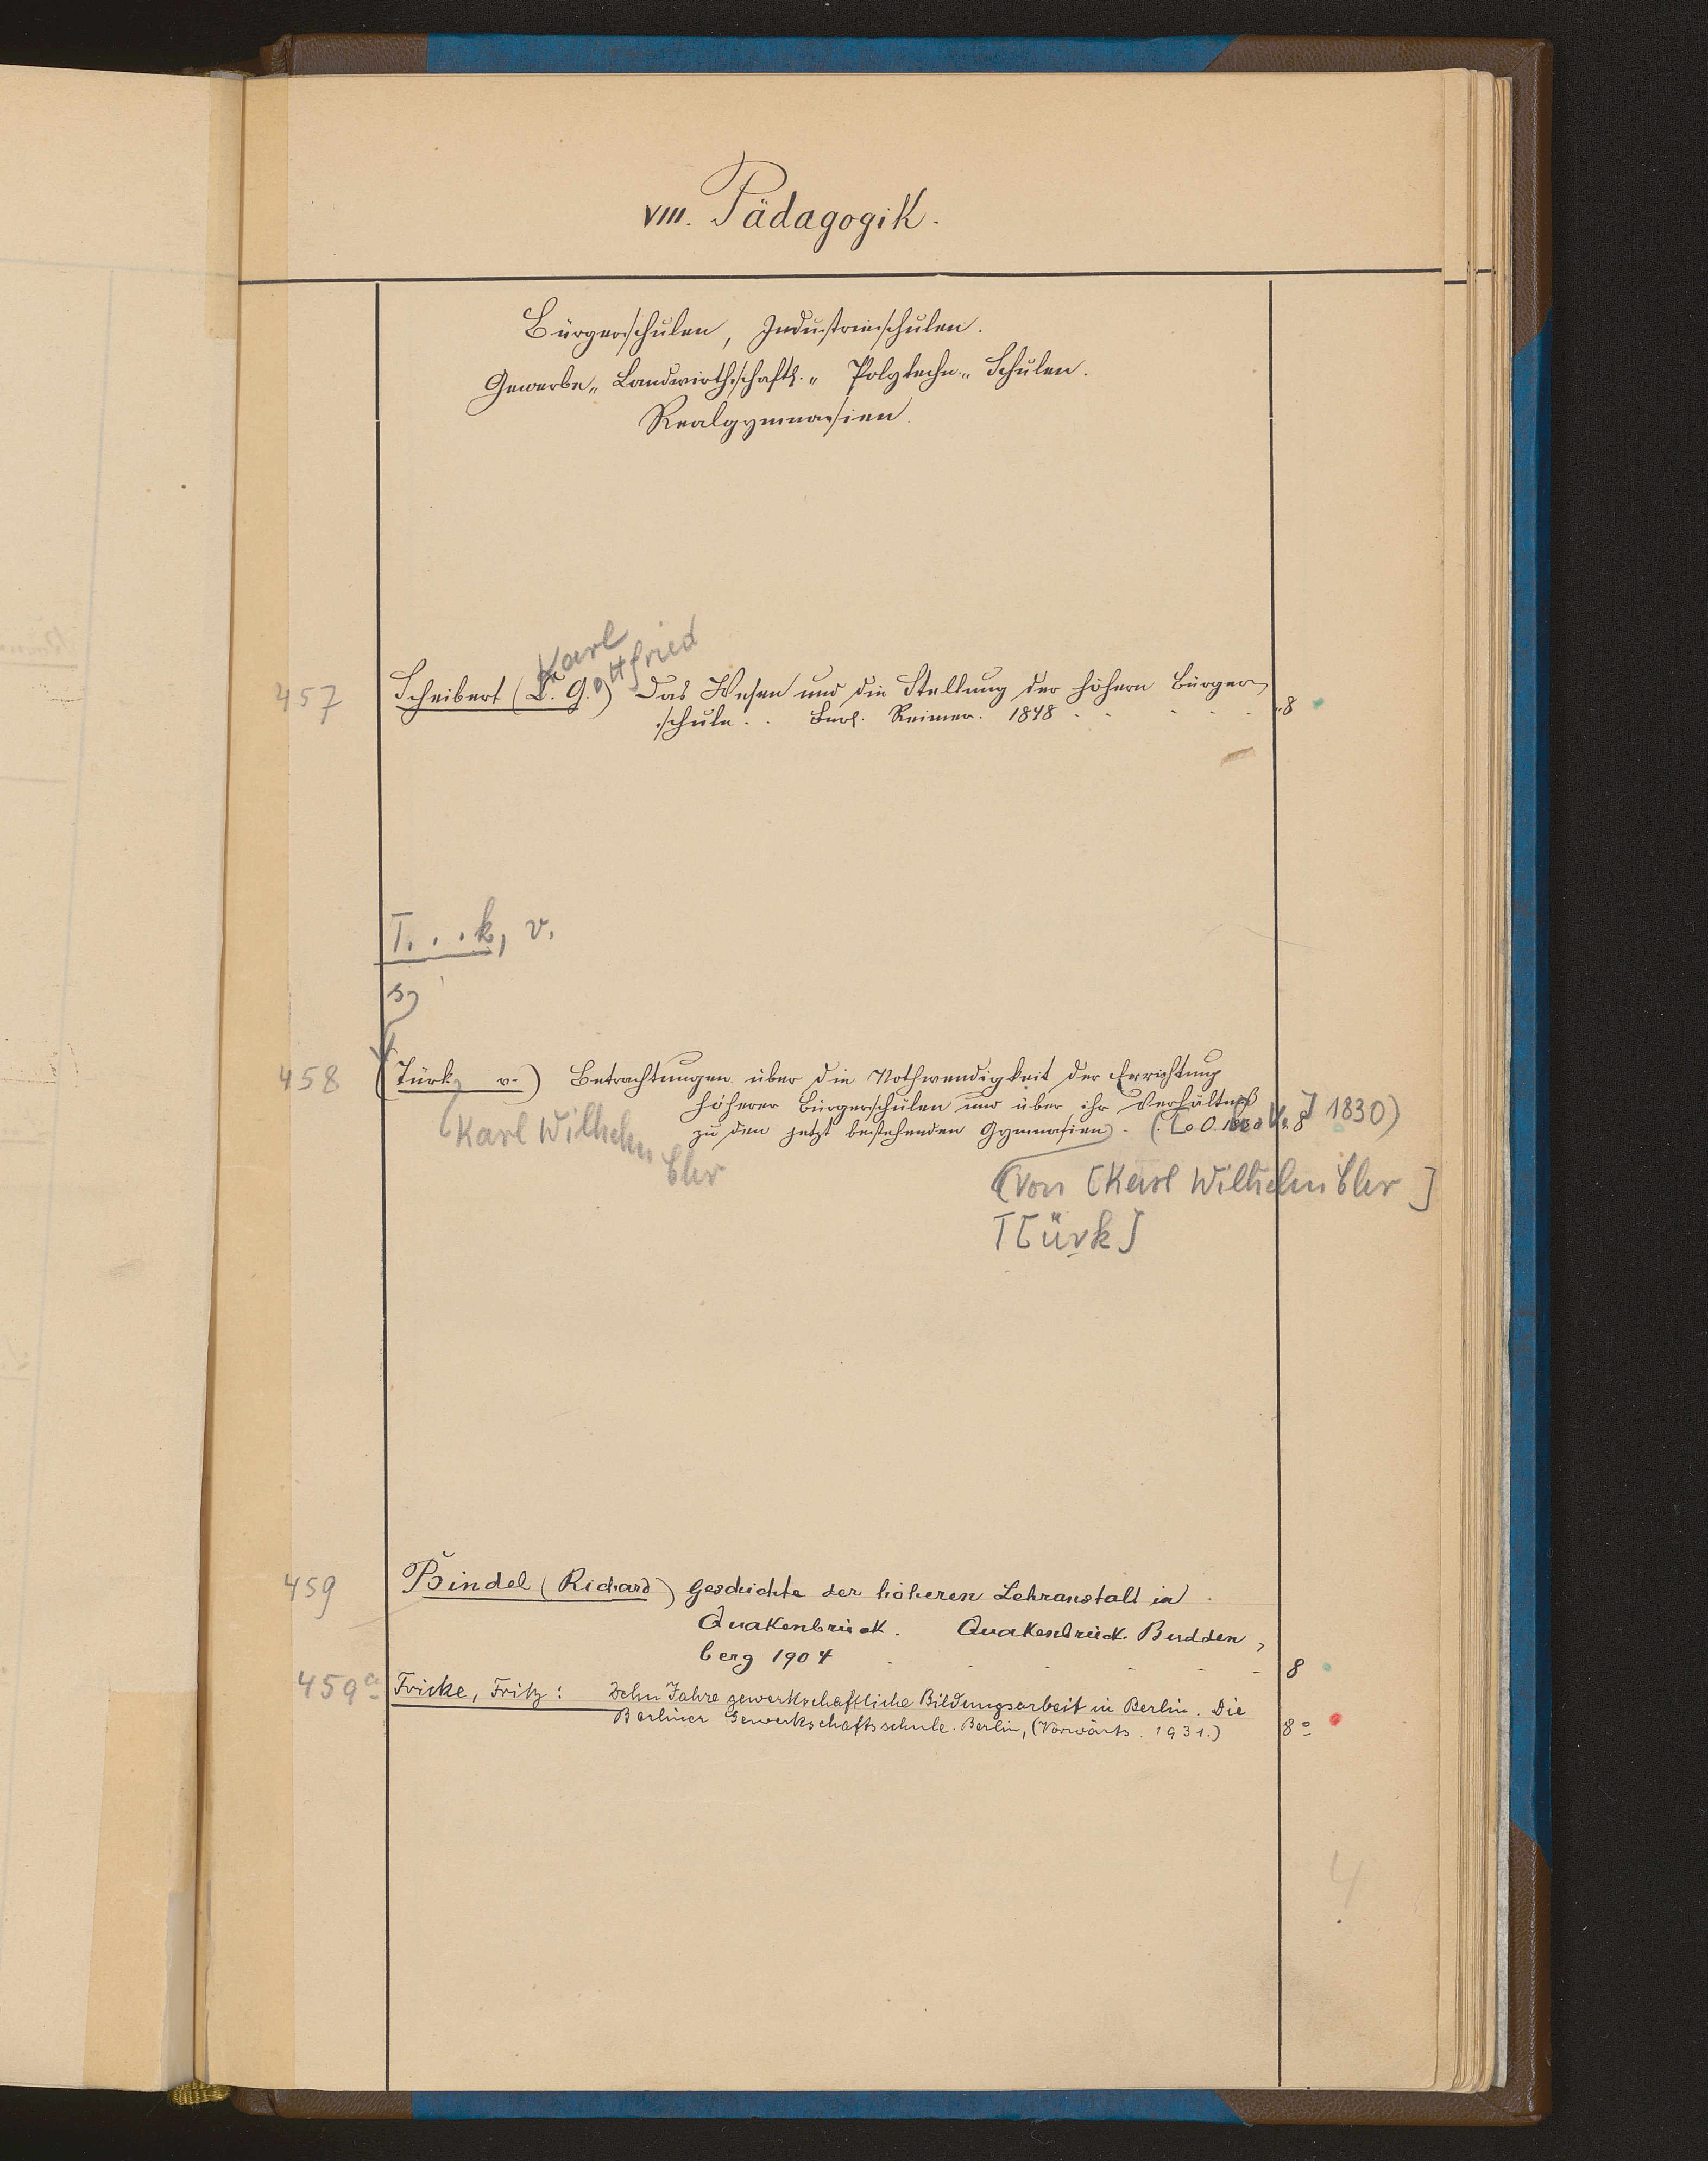 VIII. Pädagogik.
Bürgerschulen, Industrieschulen.
Gewerbe„ Landwirthschaftl.„ Polytechn.„ Schulen.
Realgymnasien.
Karl
ottfried
457 Scheibert (C. G.) Das Wesen und die Stellung der höhern Bürger
schule . . Berl. Reimer. 1848 8
T. . . k, v.
458 (Türk, v.) Betrachtungen über die Nothwendigkeit der Errichtung
höherer Bürgerschulen und über ihr Verhältniß
zu den jetzt bestehenden Gymnasien. ( o. O. 8 1830)
Karl Wilhelm Chr
(von [Karl Wilhelm Chr]
T[ürk]
459 Bindel (Richard) Geschichte der höheren Lehranstalt in
Quakenbrück. Quakenbrück. Budden
berg 1904 8
459a Fricke, Fritz: Zehn Jahre gewerkschaftliche Bildungsarbeit in Berlin. Die
Berliner Gewerkschaftsschule. Berlin, (Vorwärts. 1931.) 8°
4